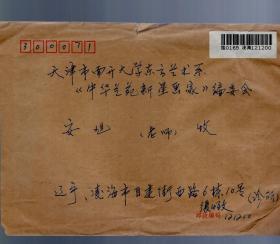 300071
国0165 凌海121200
天津市南开大学东方艺术系
《中华艺苑新星画家》编委会
安旭 (老师) 收
辽宁、凌海市自建街西路6栋10号(诊所)
邮政编码 121200